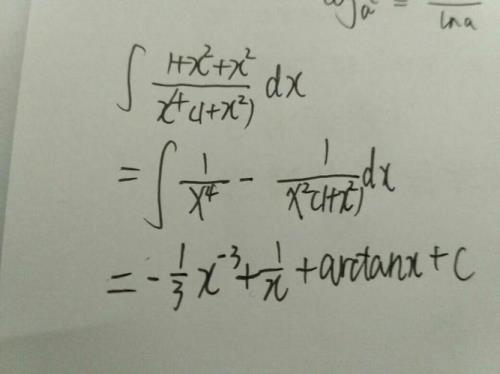 = ― / ln a
∫ (1+x²+x²)/(x⁴(1+x²)) dx
= ∫ 1/x⁴ - 1/(x²(1+x²)) dx
= -1/3 x⁻³ + 1/x + arctanx + C